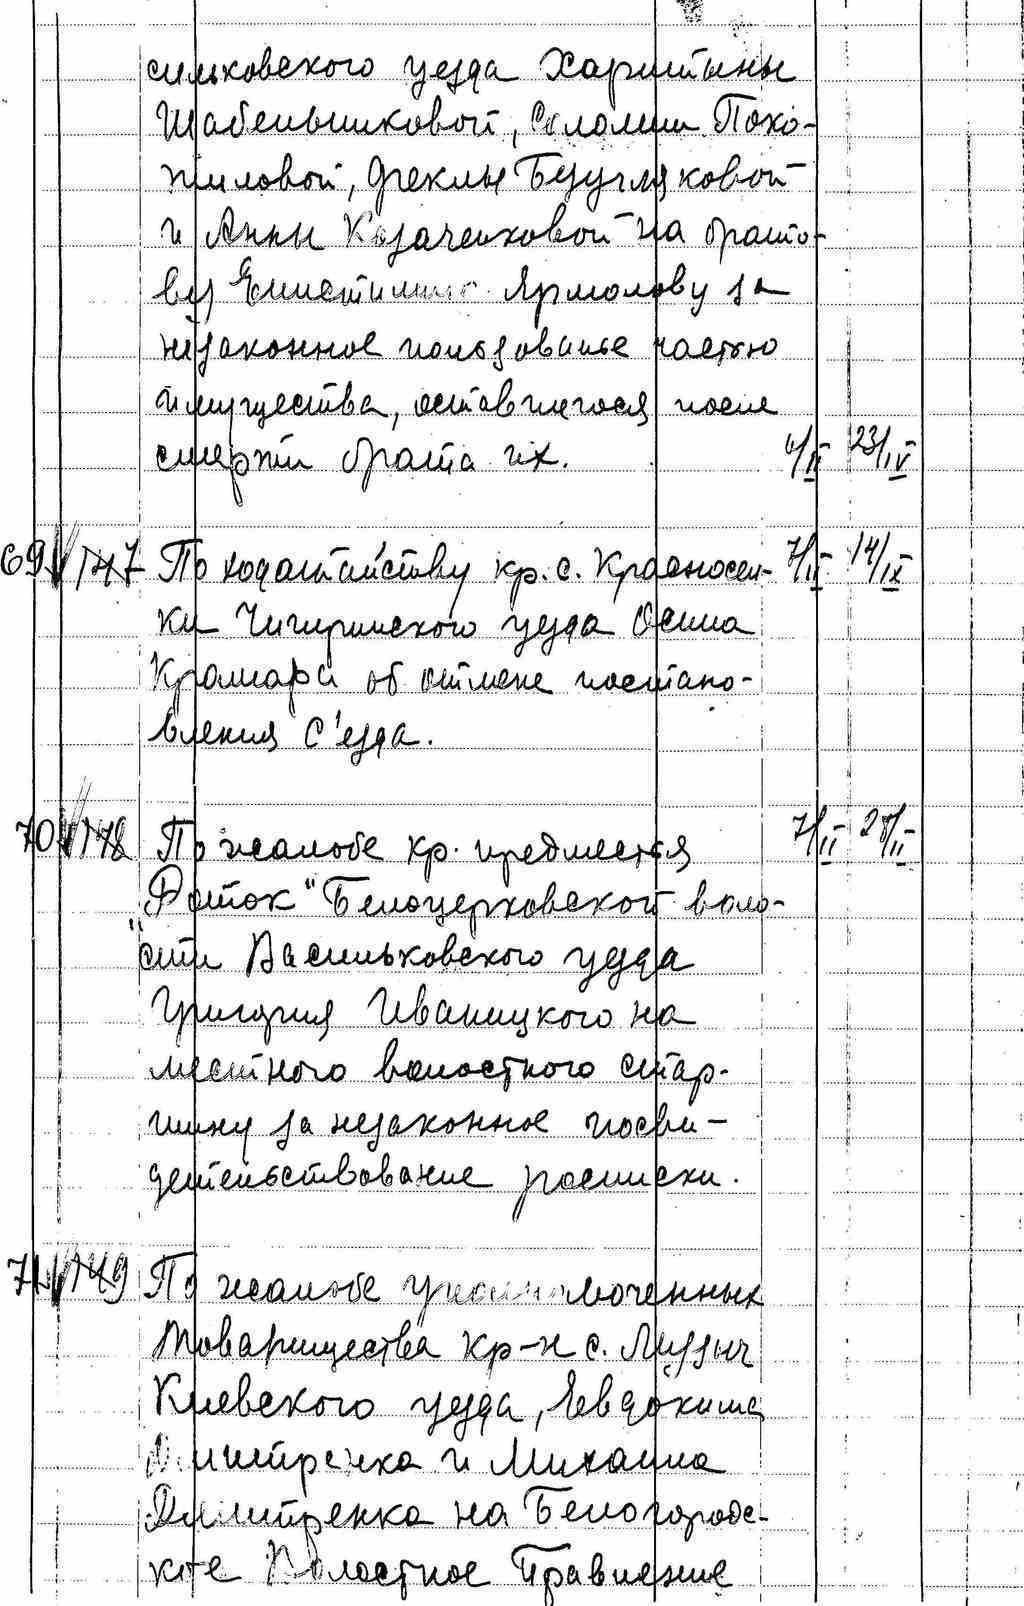 сильковского уезда Харитины
Шабельниковой, Соломии Похо-
жиловой, Феклы Безугляковой
и Анны Козаченковой на брато-
ву Ермолову за
незаконное пользованье частью
имущества, оставшегося после
смерти брата их. 4/II 23/IV
69 147 По ходатайству кр. с. Красносел- 7/II 14/IX
ки Чигиринского уезда Осипа
Крамара об отмене постано-
вления с'езда.
70 148 По жалобе кр. предместья 7/II 28/II
"Роток" Белоцерковской воло-
сти Васильковского уезда
Григория Иваницкого на
местного волостного стар-
шину за незаконное посви-
детельствование росписки.
71 149 По жалобе уполномоченных
товарищества кр-н с. Музыч
Киевского уезда, Евдокима
Дмитренка и Михаила
Дмитренка на Белогородс-
кое Волостное Правление